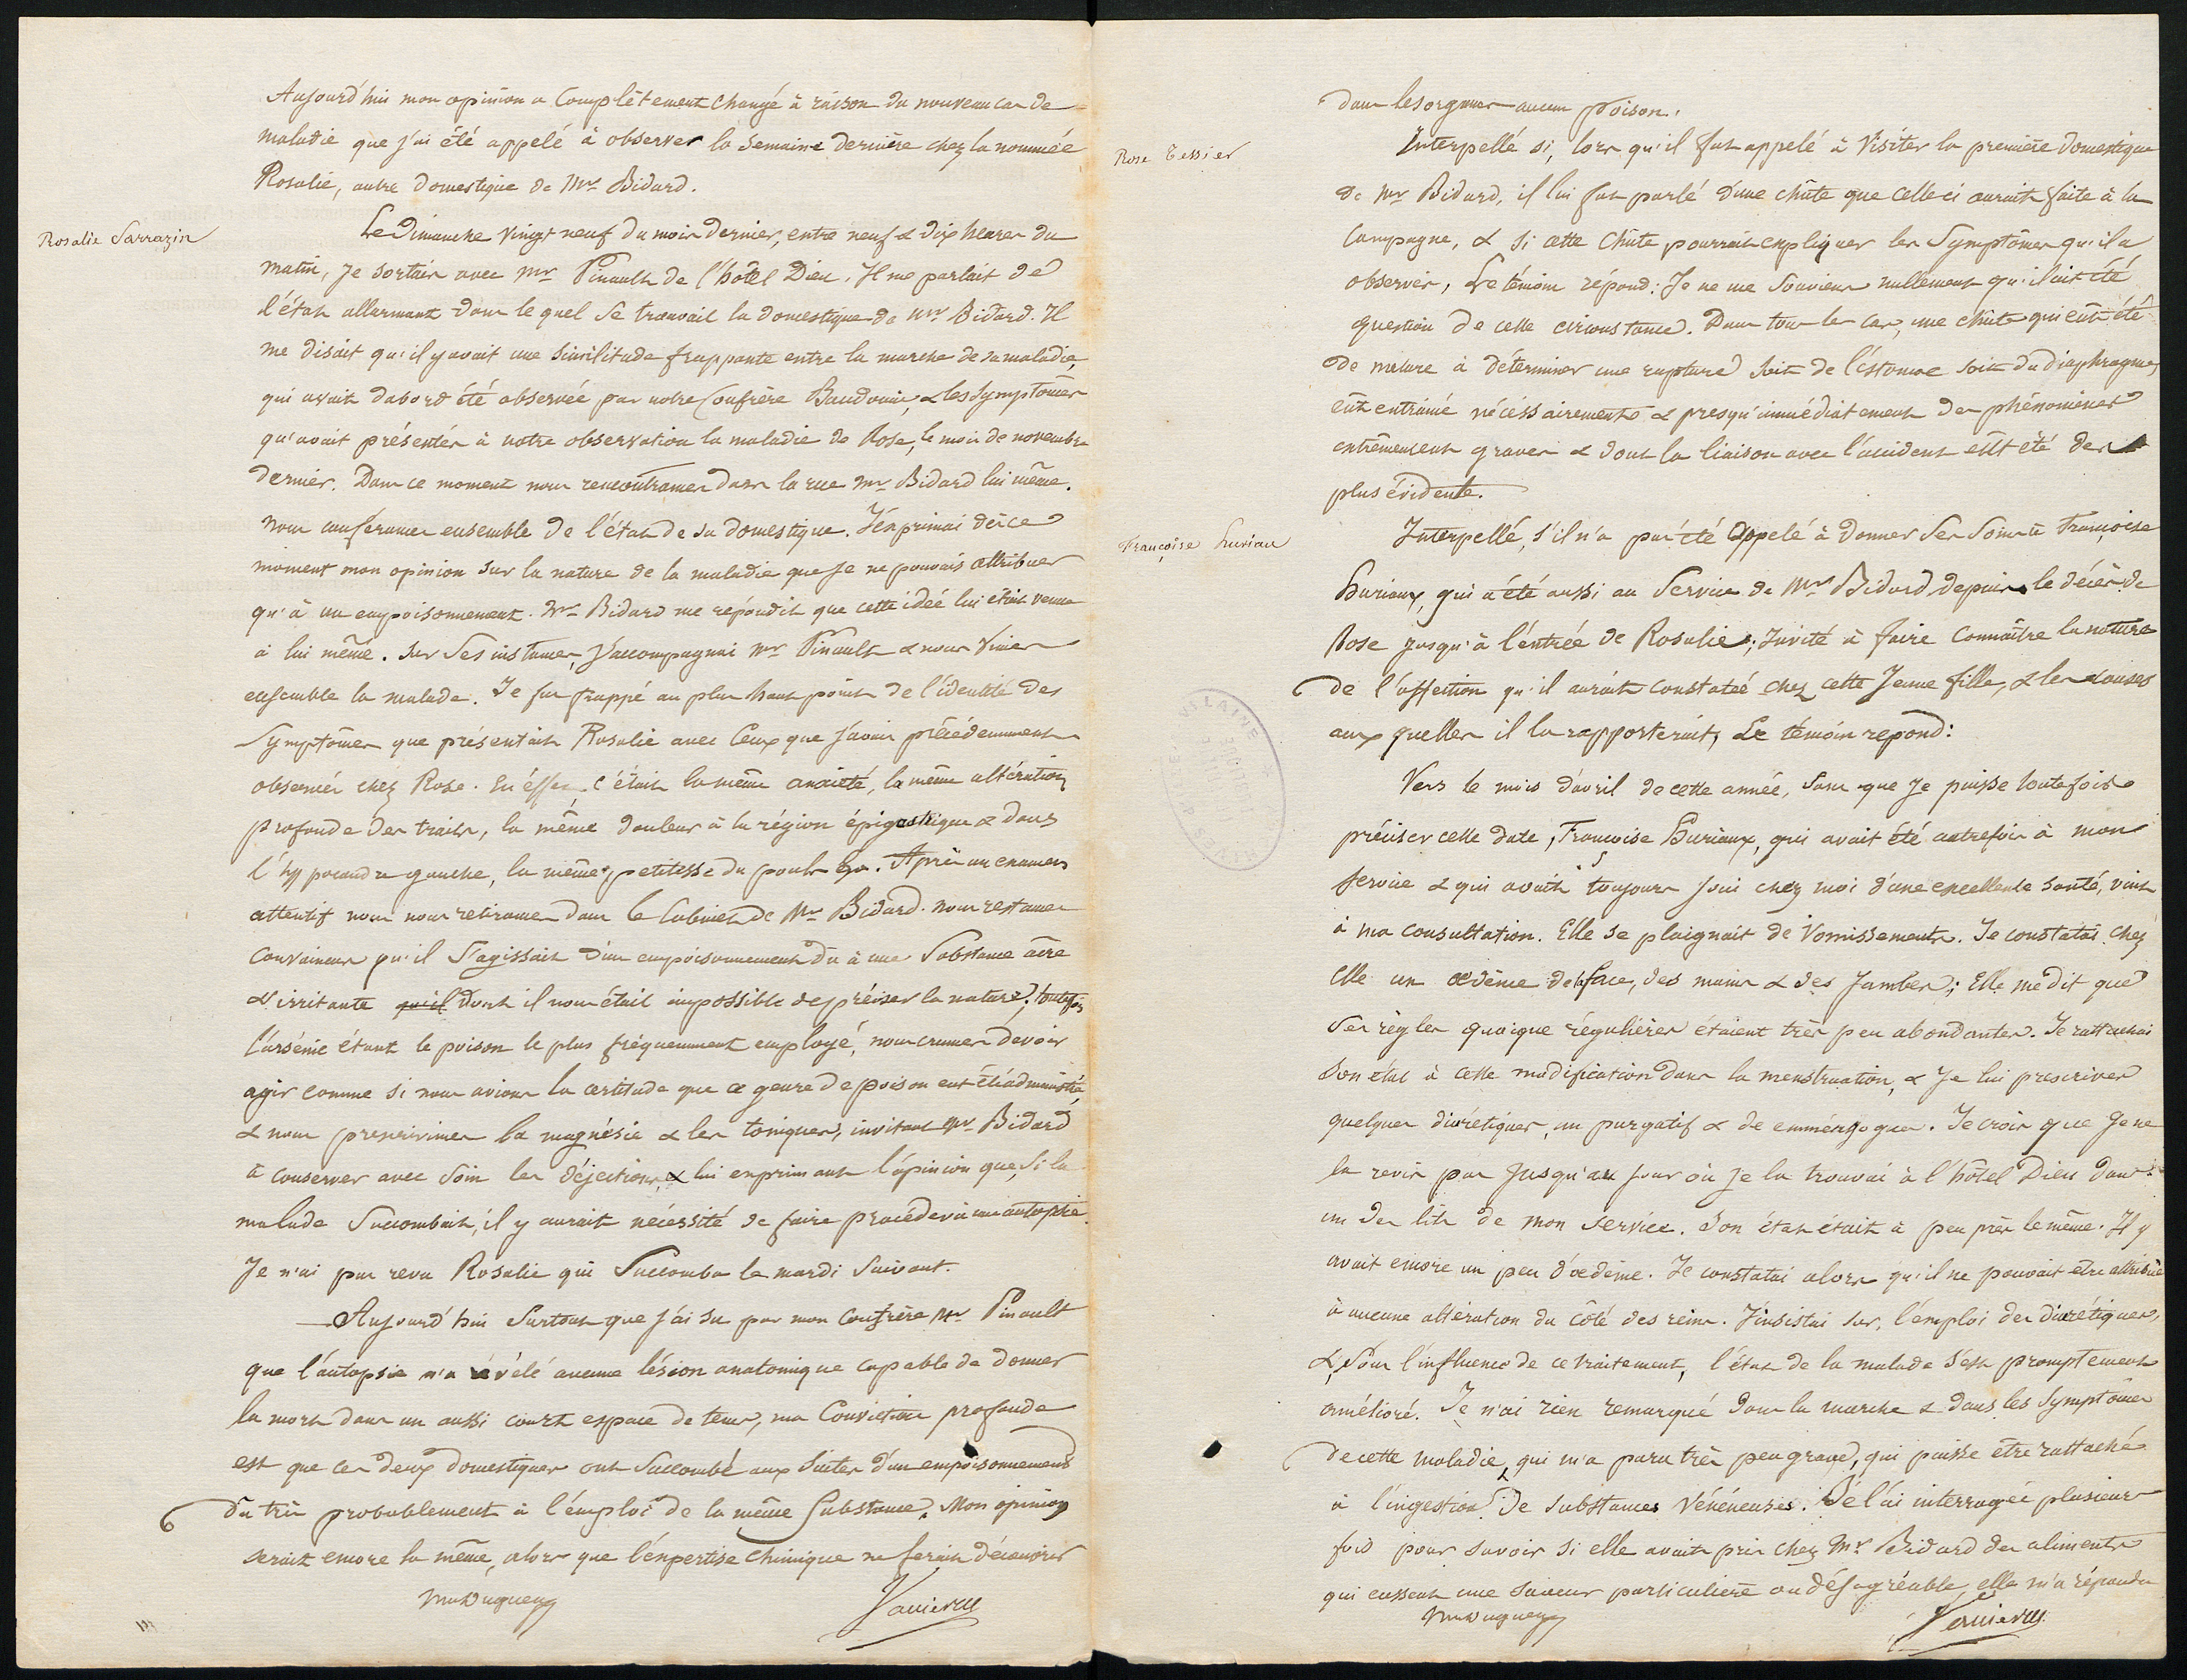 Aujourd'hui mon opinion a complètement changé à raison du nouveau cas de
maladie que j'ai été appelé à observer la semaine dernière chez la nommée
Rosalie, autre domestique de Mr Bidard.
Rosalie Sarrazin
Le Dimanche vingt neuf du mois dernier, entre neuf & dix heures du
matin, je sortais avec Mr Pinault de l'hôtel Dieu. Il me parlait de
l'état allarmant dans le quel se trouvait la domestique de Mr Bidard. Il
me disait qu'il y avait une similitude frappante entre la marche de sa maladie,
qui avait dabord été observée par notre confrère Baudouin, & les symptômes
qu'avait présentés à notre observation la maladie de Rose, le mois de novembre
dernier. Dans ce moment nous rencontrames dans la rue Mr Bidard lui même.
nous conferames ensemble de l'état de sa domestique. J'exprimai dès ce
moment mon opinion sur la nature de la maladie que je ne pouvais attribuer
qu'à un empoisonnement. Mr Bidard me répondit que cette idée lui était venue
à lui même. Sur ses instances, j'accompagnai Mr Pinault & nous vimes
ensemble la malade. Je fus frappé au plus haut point de l'identité des
symptômes que présentait Rosalie avec ceux que j'avais précédemment
observés chez Rose. En effet, c'était la même anxiété, la même altération
profonde des traits, la même douleur à la région épigastrique & dans
l'hypocondre gauche, la même petitesse du pouls &a. Après un examen
attentif nous nous retirames dans le cabinet de Mr Bidard. nous restames
convaincus qu'il s'agissait d'un empoisonnement dû à une substance âcre
& irritante qu'il dont il nous était impossible de préciser la nature; toutefois
l'arsénic étant le poison le plus fréquemment employé, nous crumes devoir
agir comme si nous avions la certitude que ce genre de poison eut été administré,
& nous prescrivimes la magnésie & les toniques, invitant Mr Bidard
à conserver avec soin les déjections, & lui exprimant l'opinion que, si la
malade succombait, il y aurait nécessité de faire procéder à une autopsie.
Je n'ai pas revu Rosalie qui succomba le mardi suivant.
Aujourd'hui surtout que j'ai su par mon confrère Mr Pinault
que l'autopsie n'a révélé aucune lésion anatomique capable de donner
la mort dans un aussi court espace de tems, ma conviction profonde
est que ces deux domestiques ont succombé aux suites d'un empoisonnement
dû très probablement à l'emploi de la même substance. Mon opinion
serait encore la même, alors que l'expertise chimique ne ferait découvrir
dans les organes aucun poison.
Rose Tessier
Interpellé si, lors qu'il fut appelé à visiter la première domestique
de Mr Bidard, il lui fut parlé d'une chûte que celle ci aurait faite à la
campagne, & si cette chûte pourrait expliquer les symptômes qu'il a
observés, Le témoin répond: Je ne me souviens nullement qu'il ait été
question de cette circonstance. Dans tous les cas, une chûte qui eût été
de nature à déterminer une rupture soit de l'estomac soit du diaphragme,
eût entrainé nécéssairement & presqu'immédiatement des phénomènes
extrêmement graves & dont la liaison avec l'accident eût été des
plus évidente.
Françoise huriau
Interpellé, s'il n'a pas été appelé à donner ses soins à Françoise
Huriaux, qui a été aussi au service de Mr Bidard depuis le décès de
Rose jusqu'à l'entrée de Rosalie; Invité à faire connaître la nature
de l'affection qu'il aurait constatée chez cette jeune fille, & les causes
aux quelles il la rapporterait, Le témoin répond:
Vers le mois d'avril de cette année, sans que je puisse toutefois
préciser cette date, Françoise Huriaux, qui avait été autrefois à mon
service & qui avait toujours joui chez moi d'une excellente santé, vint
à ma consultation. Elle se plaignait de vomissements. Je constatai chez
elle un œdème de la face, des mains & des jambes; Elle me dit que
ses règles quoique régulières étaient très peu abondantes. Je rattachai
son état à cette modification dans la menstruation, & je lui prescrivis
quelques diurétiques, un purgatif & de emménagogues. Je crois que je ne
la revis pas jusqu'au jour où je la trouvai à l'hôtel Dieu dans
un des lits de mon service. Son état était à peu près le même. Il y
avait encore un peu d'œdème. Je constatai alors qu'il ne pouvait etre attribué
à aucune altération du côté des reins. J'insistai sur l'emploi des diurétiques,
&, sous l'influence de ce traitement, l'état de la malade s'est promptement
amélioré. Je n'ai rien remarqué dans la marche & dans les symptômes
de cette maladie, qui m'a paru très peu grave, qui puisse être rattaché
à l'ingestion de substances vénéneuses. Je l'ai interrogée plusieurs
fois pour savoir si elle avait pris chez Mr Bidard des aliments
qui eussent une saveur particulière ou désagréable, elle m'a répondu